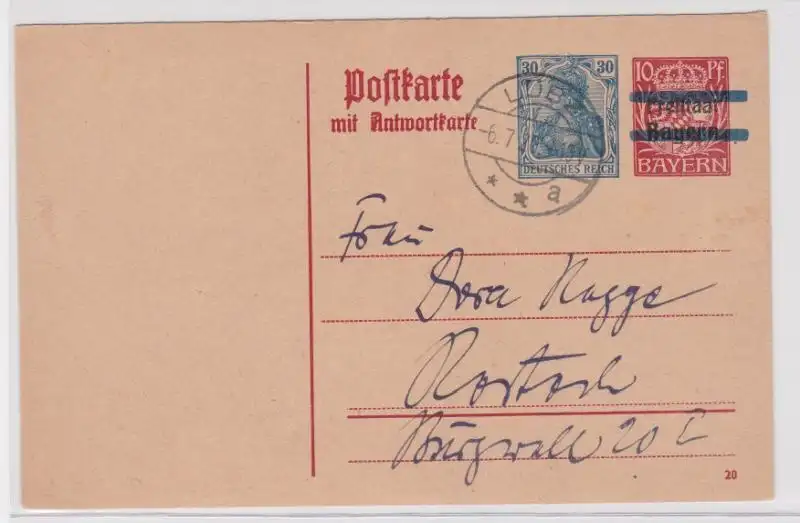 Postkarte
mit Antwortkarte
30 30
DEUTSCHES REICH
10 Pf.
Bayern
BAYERN
-6.7.
a
Frau
Dora Nagge
Rostock
Burgwall 20 I
20